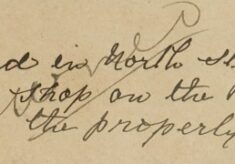 d in North s
shop on the
the property